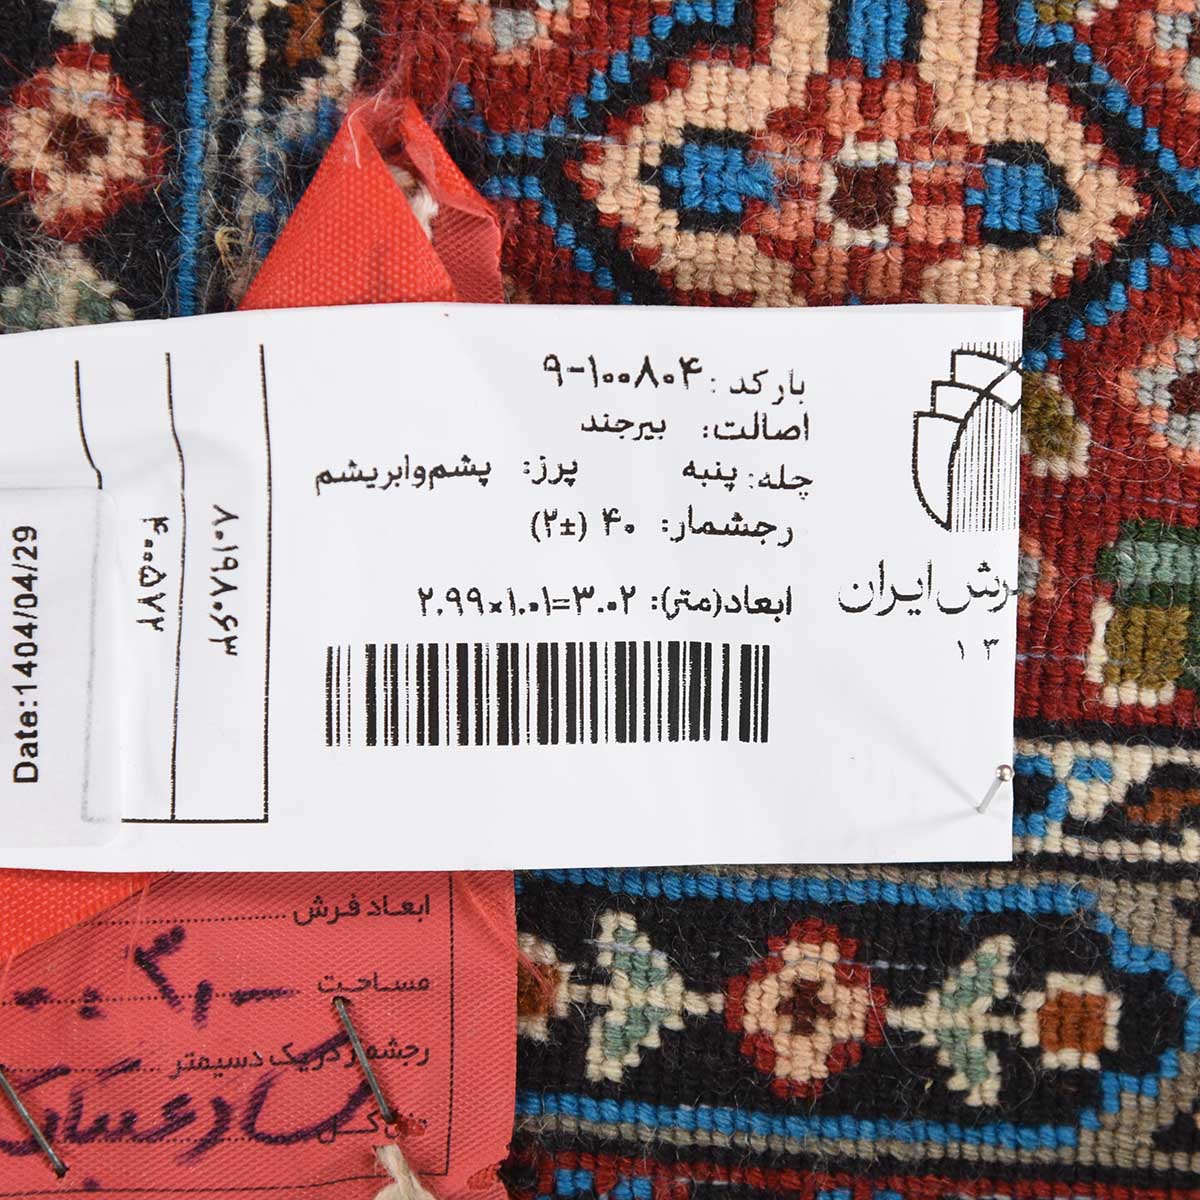 بارکد: ۹-۱۰۰۸۰۴
اصالت: بیرجند
چله: پنبه پرز: پشم‌و‌ابریشم
رجشمار: ۴۰ (±۲)
ابعاد(متر): ۲.۹۹×۱.۰۱=۳.۰۲
رش ایران
۱۳
۸۰۱۹۸۰۶۳
۴۰۰۵۷۲
Date:1404/04/29
ابعاد فرش
مساحت
رجشمار در یک دسیمتر